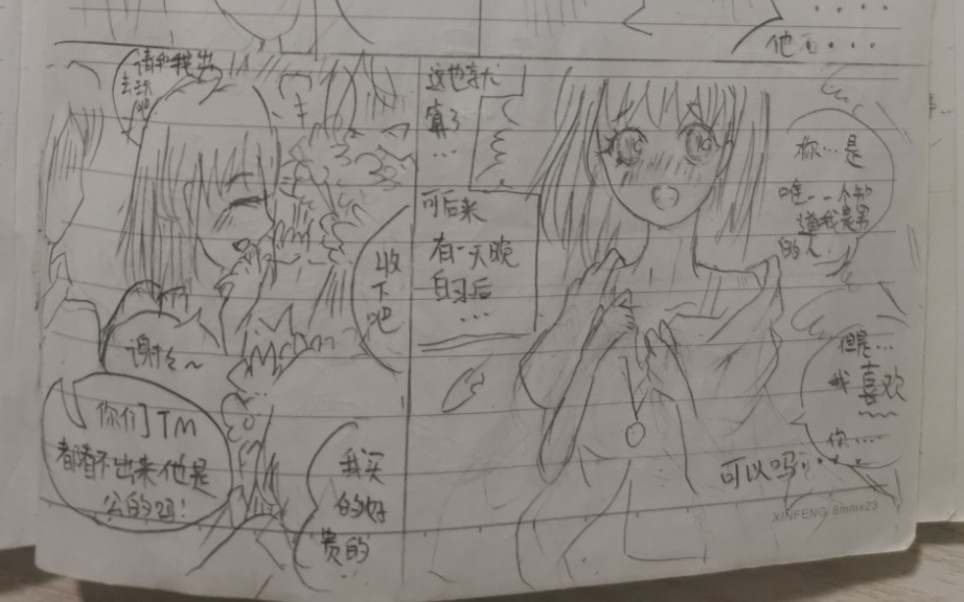 他
请和我出
去玩
谢谢~
收
下
吧
你们TM
都看不出来他是
公的吗!
我买
的好
贵的
这也就
算了
...
可后来
有一天晚
自习后
...
你...是
唯一一个知
道我是男
的人.
但是...
我喜欢
你....
可以吗
XINFENG 8mmx23